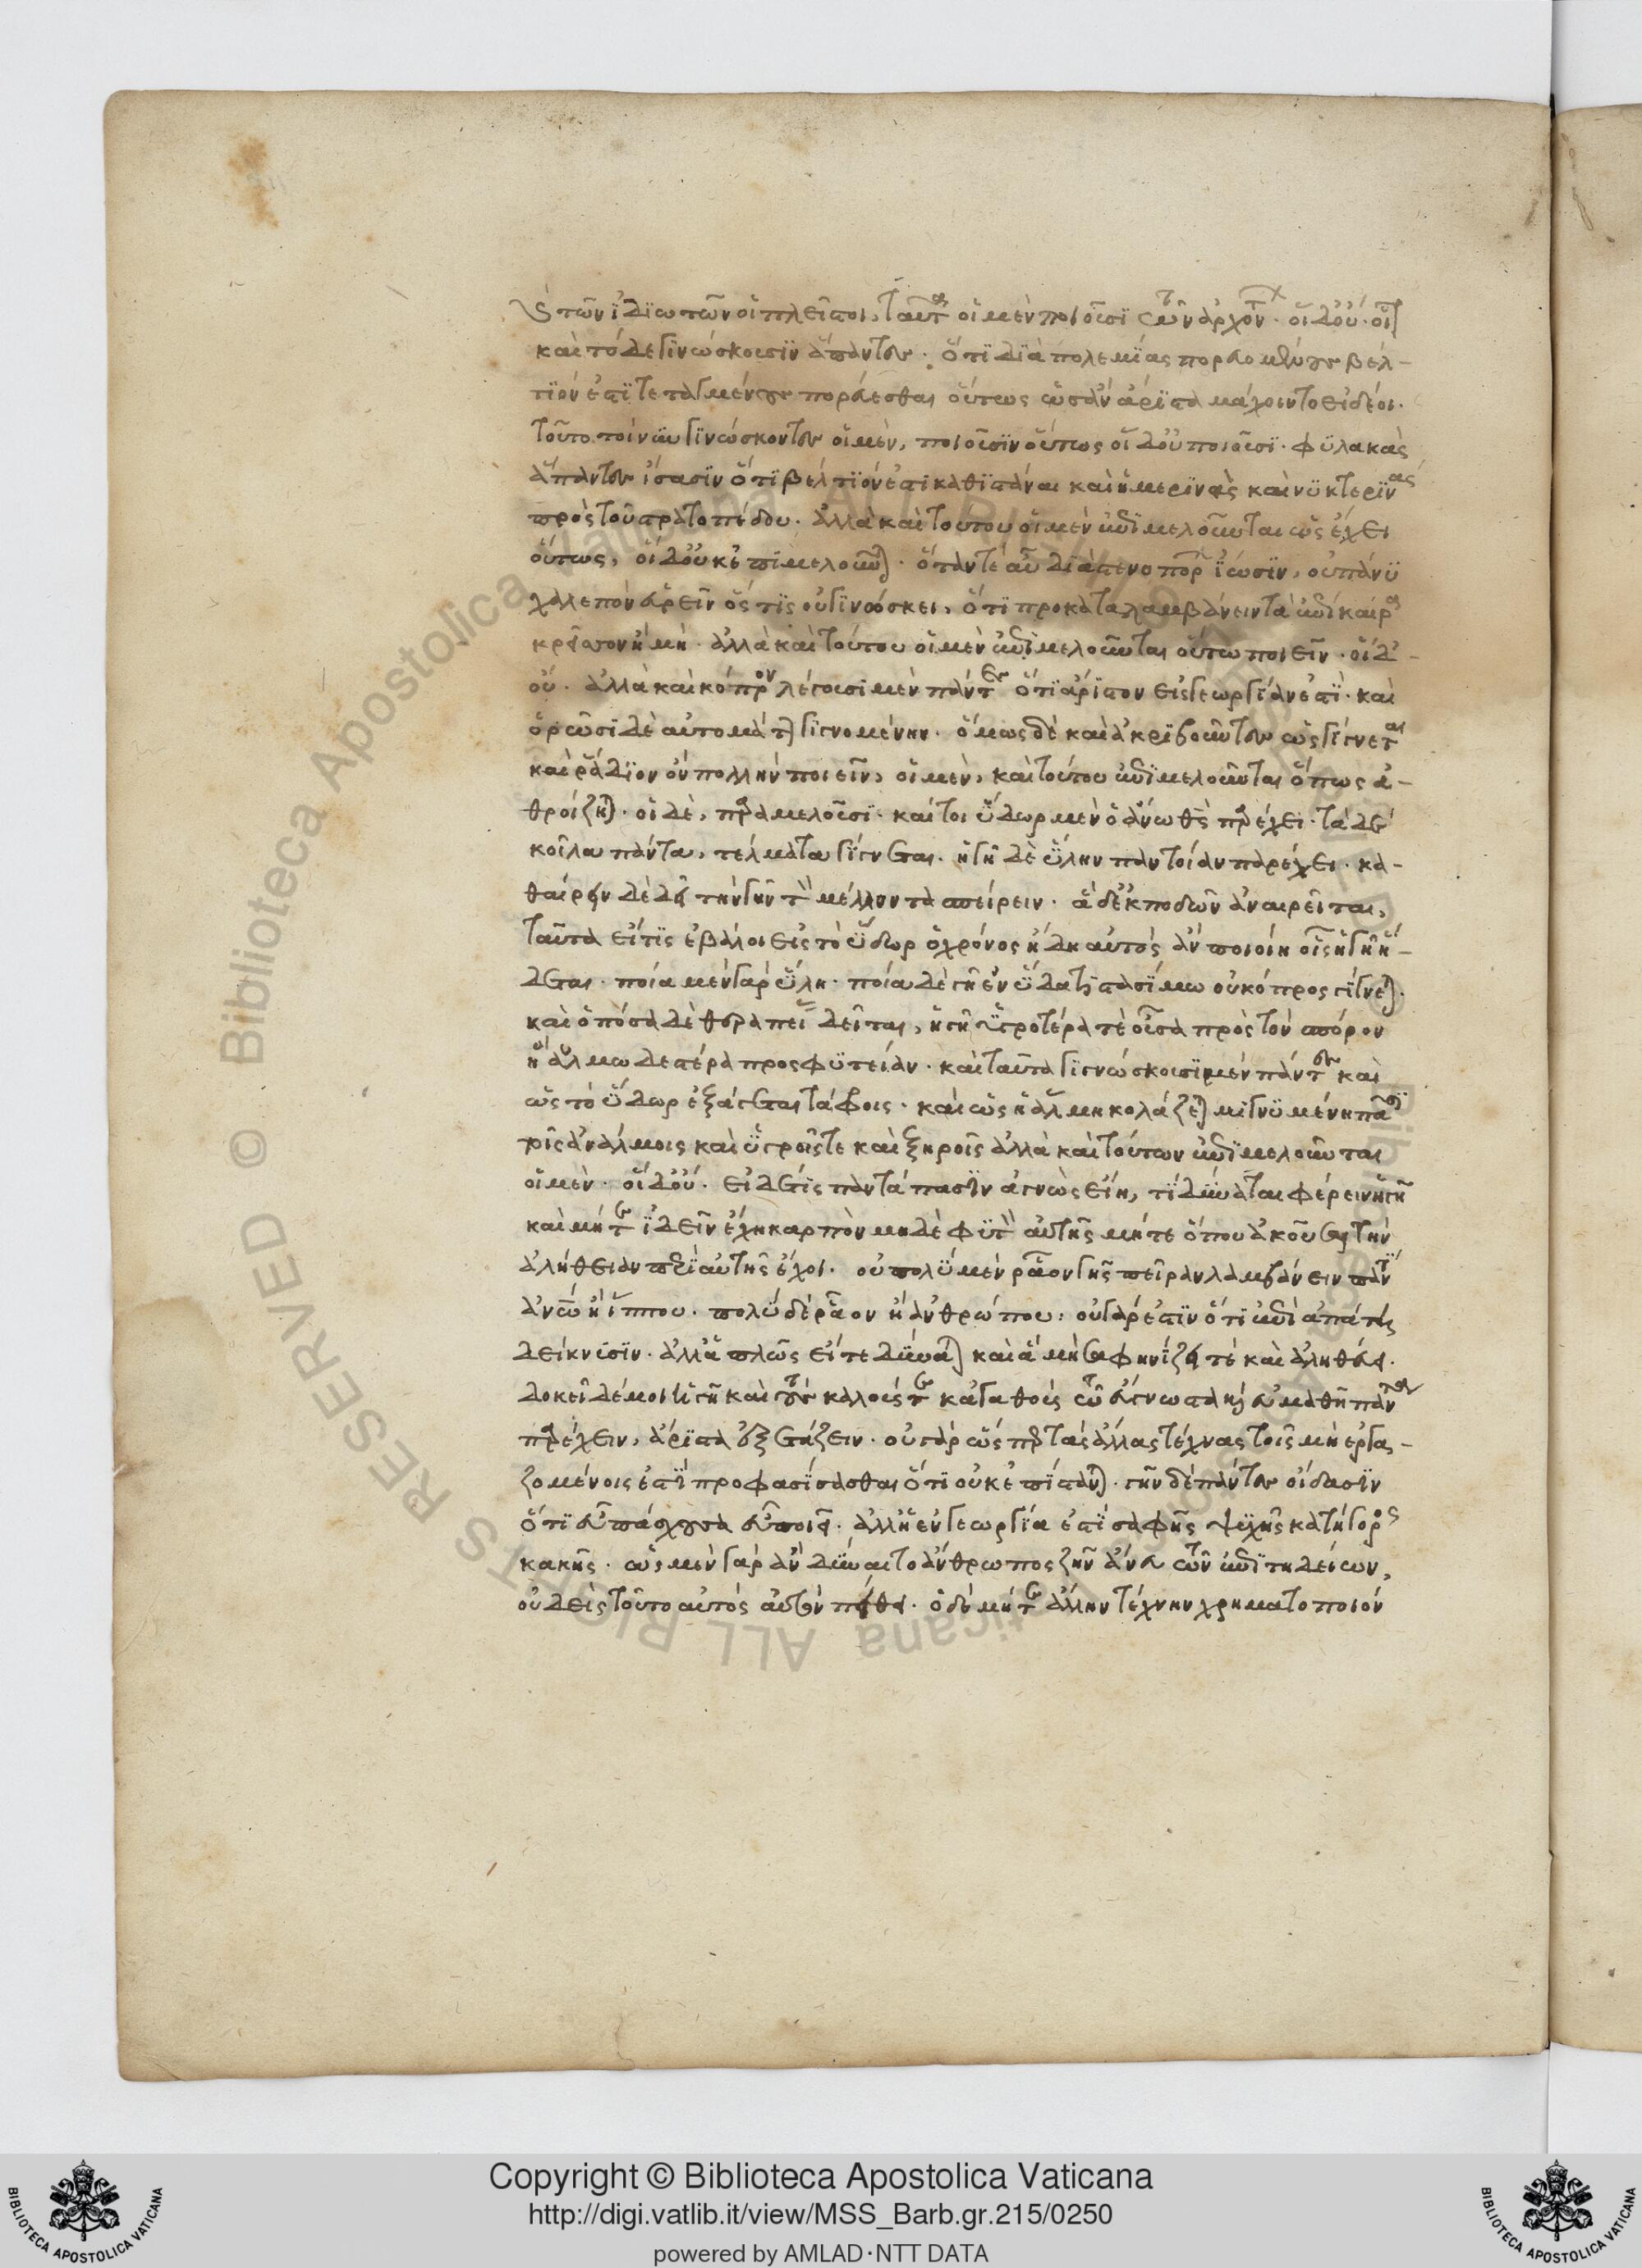 τῶν ἰδιωτῶν οἱ πλεῖστοι, ταῦτα οἱ μὲν ποιοῦσι τῶν ἀρχόντων· οἱ δ' οὔ· οἷον
καὶ τόδε γινώσκουσιν ἅπαντες· ὅτι διὰ πολεμίας πορευομένους βέλ-
τιόν ἐστι τεταγμένους πορεύεσθαι οὕτως ὡς ἂν ἄριστα μάχοιντο εἰ δέοι.
τοῦτο τοίνυν γινώσκοντες οἱ μὲν, ποιοῦσιν οὕτως οἱ δ' οὐ ποιοῦσι. φυλακὰς
ἅπαντες ἴσασιν ὅτι βέλτιόν ἐστι καθιστάναι καὶ ἡμερινὰς καὶ νυκτερινὰς
πρὸ τοῦ στρατοπέδου. ἀλλὰ καὶ τούτου οἱ μὲν ἐπιμελοῦνται ὡς ἔχει
οὕτως, οἱ δ' οὐκ ἐπιμελοῦνται. ὅταν τε αὖ διὰ στενοπόρων ἴωσιν, οὐ πάνυ
χαλεπὸν εὑρεῖν ὅστις οὐ γινώσκει, ὅτι προκαταλαμβάνειν τὰ ἐπίκαιρα
κρεῖττον ἢ μή. ἀλλὰ καὶ τούτου οἱ μὲν ἐπιμελοῦνται οὕτω ποιεῖν. οἱ δ'
οὔ. ἀλλὰ καὶ κόπρον λέγουσι μὲν πάντες ὅτι ἄριστον εἰς γεωργίαν ἐστὶ. καὶ
ὁρῶσι δὲ αὐτομάτην γιγνομένην. ὅμως δὲ καὶ ἀκριβοῦντες ὡς γίγνεται
καὶ ῥᾴδιον ὂν πολλὴν ποιεῖν, οἱ μὲν, καὶ τούτου ἐπιμελοῦνται ὅπως ἀ-
θροίζηται. οἱ δὲ, παραμελοῦσι. καίτοι ὕδωρ μὲν ὁ ἄνωθεν παρέχει. τὰ δὲ
κοῖλα πάντα, τέλματα γίγνεται. ἡ γῆ δὲ ὕλην παντοίαν παρέχει. κα-
θαίρειν δὲ δεῖ τὴν γῆν τὸν μέλλοντα σπείρειν. ἃ δ' ἐκποδὼν ἀναιρεῖται,
ταῦτα εἴ τις ἐμβάλοι εἰς τὸ ὕδωρ ὁ χρόνος ἤδη αὐτὸς ἂν ποιοίη οἷς ἡ γῆ ἥ-
δεται. ποία μὲν γὰρ ὕλη. ποία δὲ γῆ ἐν ὕδατι στασίμῳ οὐ κόπρος γίγνεται.
καὶ ὁπόσα δὲ θεραπείας δεῖται, ἡ γῆ ὑγροτέρα τε οὖσα πρὸς τὸν σπόρον
ἢ ἁλμωδεστέρα πρὸς φυτείαν. καὶ ταῦτα γιγνώσκουσι μὲν πάντες καὶ
ὡς τὸ ὕδωρ ἐξάγεται τάφροις. καὶ ὡς ἡ ἅλμη κολάζεται μιγνυμένη πᾶσι
τοῖς ἀνάλμοις καὶ ὑγροῖς τε καὶ ξηροῖς ἀλλὰ καὶ τούτων ἐπιμελοῦνται
οἱ μὲν. οἱ δ' οὔ. εἰ δέ τις παντάπασιν ἀγνὼς εἴη, τί δύναται φέρειν ἡ γῆ
καὶ μήτε ἰδεῖν ἔχῃ καρπὸν μηδὲ φυτὸν αὐτῆς μήτε ὅπου ἀκοῦσαι τὴν
ἀλήθειαν περὶ αὐτῆς ἔχοι. οὐ πολὺ μὲν ῥᾷον γῆς πεῖραν λαμβάνειν παντὶ
ἀνθρώπῳ ἢ ἵππου. πολὺ δὲ ῥᾷον ἢ ἀνθρώπου. οὐ γὰρ ἔστιν ὅτι ἐπὶ ἀπάτης
δείκνυσιν. ἀλλ' ἁπλῶς εἴ τε δύναται καὶ ἃ μὴ σαφηνίζει τε καὶ ἀληθεύει.
δοκεῖ δέ μοι ἡ γῆ καὶ τοὺς καλούς τε κἀγαθοὺς τῷ εὔγνωστα καὶ εὐμαθῆ πάντα
παρέχειν, ἄριστα ἐξετάζειν. οὐ γὰρ ὥσπερ τὰς ἄλλας τέχνας τοῖς μὴ ἐργα-
ζομένοις ἔστι προφασίσασθαι ὅτι οὐκ ἐπίστανται. γῆν δὲ πάντες οἴδασιν
ὅτι εὖ πάσχουσα εὖ ποιεῖ. ἀλλ' ἡ ἐν γεωργίᾳ ἐστὶ σαφὴς ψυχῆς κατήγορος
κακῆς. ὡς μὲν γὰρ ἂν δύναιτο ἄνθρωπος ζῆν ἄνευ τῶν ἐπιτηδείων,
οὐδεὶς τοῦτο αὐτὸς αὑτὸν πείθει. ὁ δὲ μήτε ἄλλην τέχνην χρηματοποιὸν
BIBLIOTECA APOSTOLICA VATICANA
Copyright © Biblioteca Apostolica Vaticana
http://digi.vatlib.it/view/MSS_Barb.gr.215/0250
powered by AMLAD·NTT DATA
BIBLIOTECA APOSTOLICA VATICANA